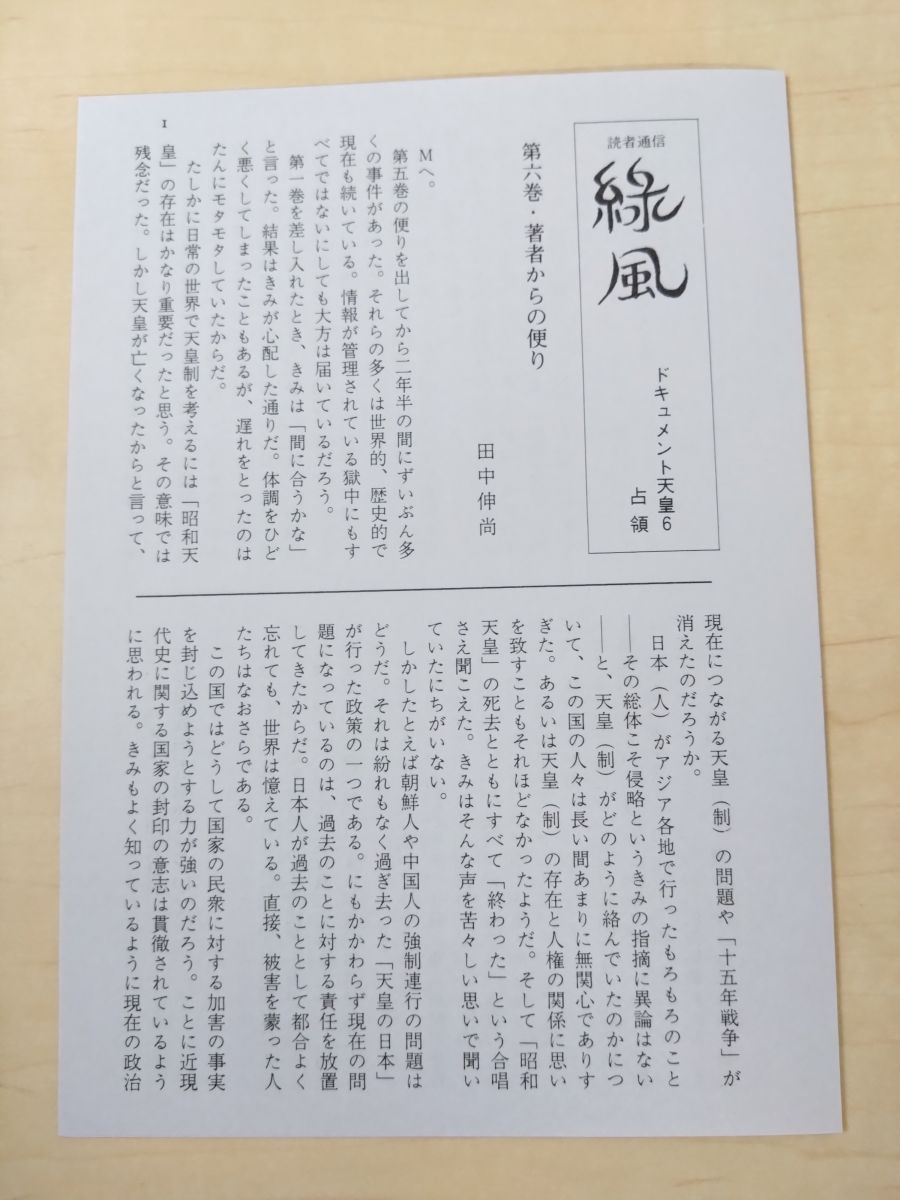 読者通信
緑風
ドキュメント天皇6
占領
第六巻・著者からの便り
田中伸尚
Mへ。
第五巻の便りを出してから二年半の間にずいぶん多
くの事件があった。それらの多くは世界的、歴史的で
現在も続いている。情報が管理されている獄中にもす
べてではないにしても大方は届いているだろう。
第一巻を差し入れたとき、きみは「間に合うかな」
と言った。結果はきみが心配した通りだ。体調をひど
く悪くしてしまったこともあるが、遅れをとったのは
たんにモタモタしていたからだ。
たしかに日常の世界で天皇制を考えるには「昭和天
皇」の存在はかなり重要だったと思う。その意味では
残念だった。しかし天皇が亡くなったからと言って、
1
現在につながる天皇（制）の問題や「十五年戦争」が
消えたのだろうか。
日本（人）がアジア各地で行ったもろもろのこと
――その総体こそ侵略というきみの指摘に異論はない
――と、天皇（制）がどのように絡んでいたのかにつ
いて、この国の人々は長い間あまりに無関心でありす
ぎた。あるいは天皇（制）の存在と人権の関係に思い
を致すこともそれほどなかったようだ。そして「昭和
天皇」の死去とともにすべて「終わった」という合唱
さえ聞こえた。きみはそんな声を苦々しい思いで聞い
ていたにちがいない。
しかしたとえば朝鮮人や中国人の強制連行の問題は
どうだ。それは紛れもなく過ぎ去った「天皇の日本」
が行った政策の一つである。にもかかわらず現在の問
題になっているのは、過去のことに対する責任を放置
してきたからだ。日本人が過去のこととして都合よく
忘れても、世界は憶えている。直接、被害を蒙った人
たちはなおさらである。
この国ではどうして国家の民衆に対する加害の事実
を封じ込めようとする力が強いのだろう。ことに近現
代史に関する国家の封印の意志は貫徹されているよう
に思われる。きみもよく知っているように現在の政治